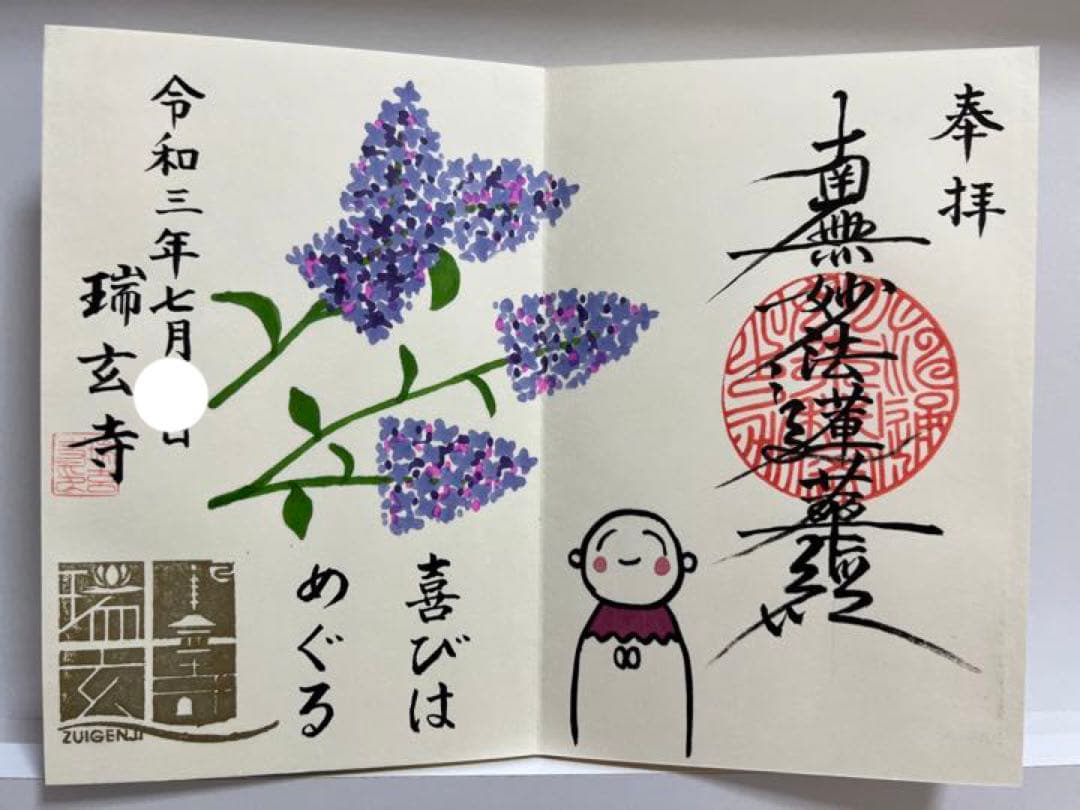 奉拝
南無妙法蓮華経
喜びは
めぐる
令和三年七月 日
瑞玄寺
瑞玄寺
ZUIGENJI